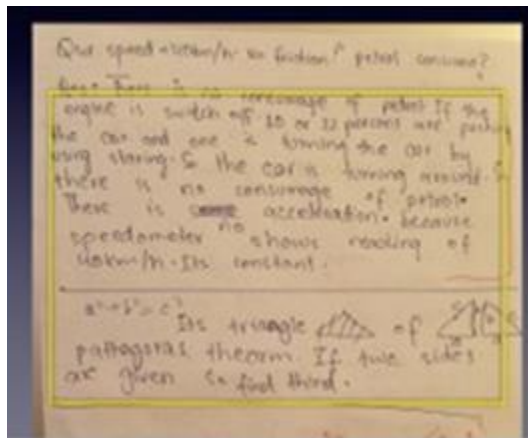 Que speed = 40km/h no friction petrol consume?
Ans. There is no consumage of petrol If the
engine is switch off 10 or 12 persons are pushing
the car and one is turning the car by
using staring. & the car is turning around. &
there is no consumage of petrol.
There is no acceleration. because
speedometer shows reading of
40km/h. Its constant.
a² + b² = c²
Its triangle of
pathagoras theorm. If two sides
are given to find third.